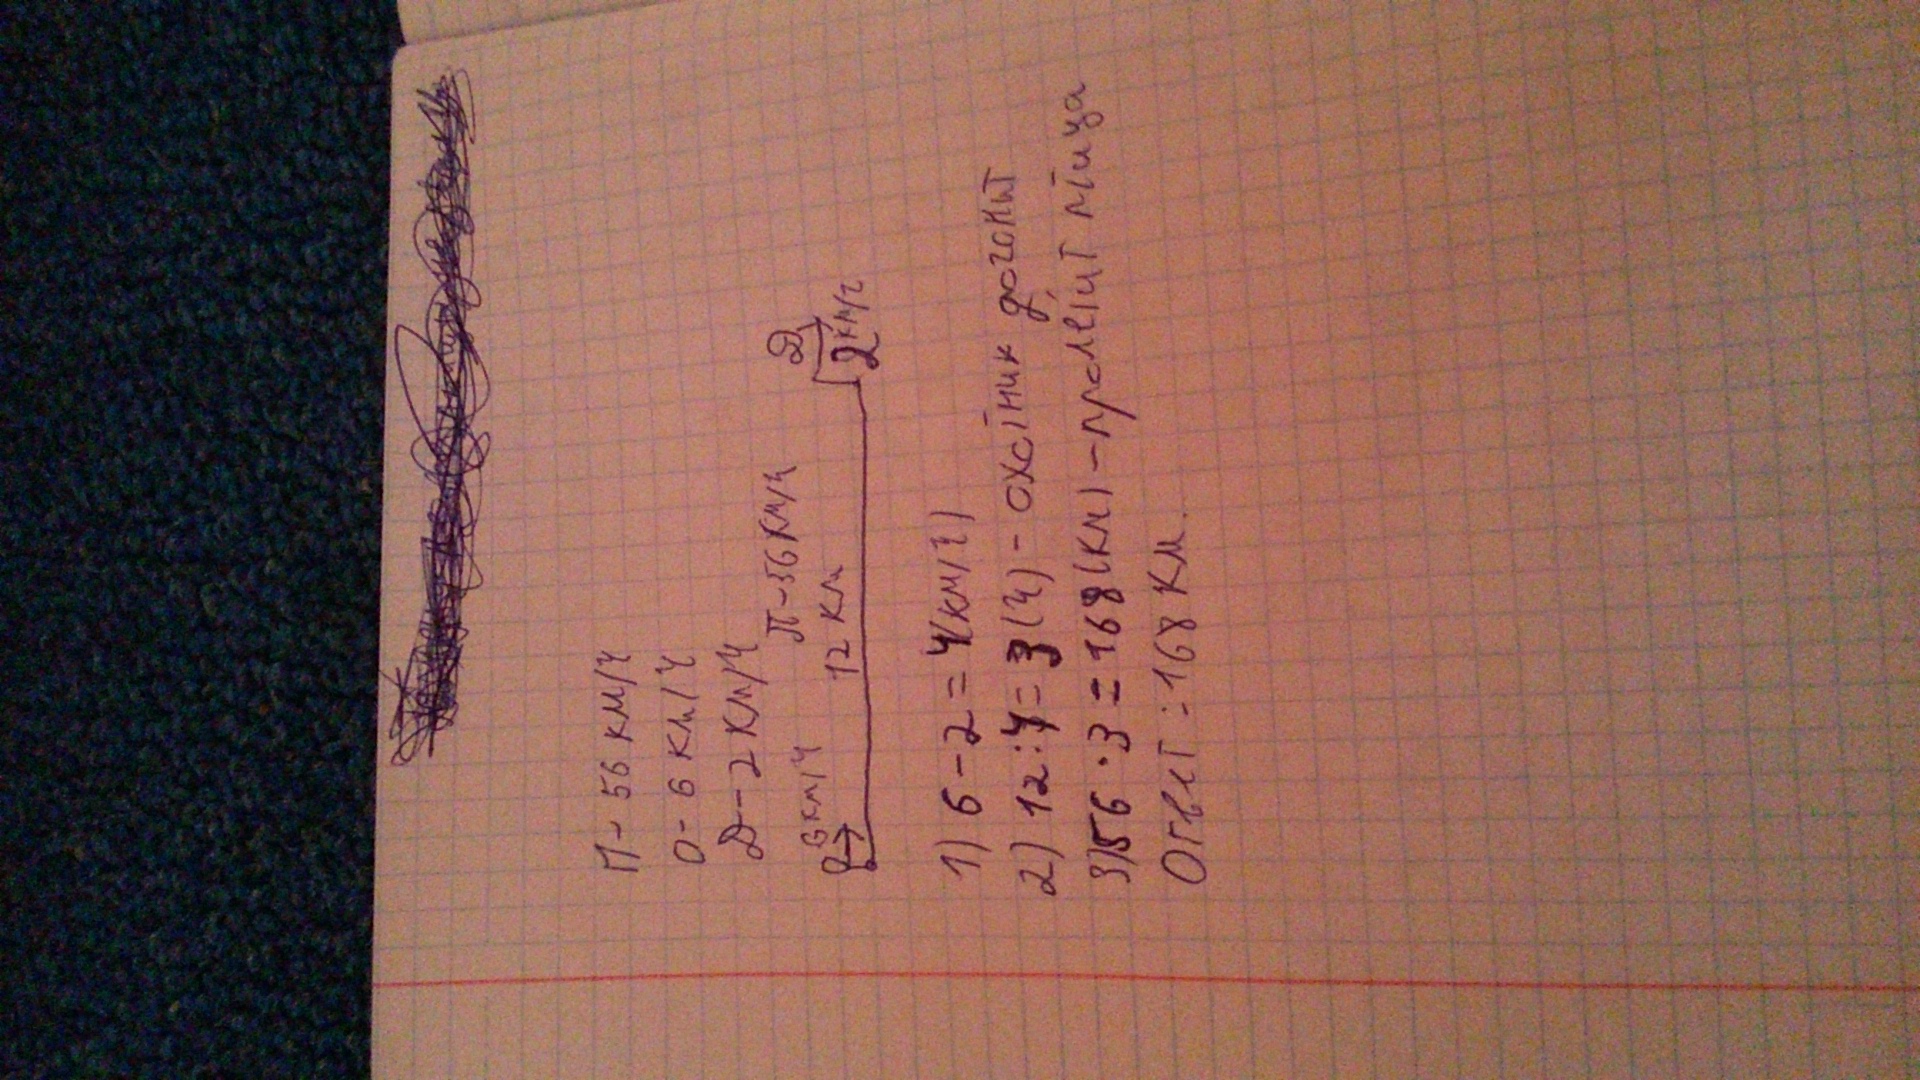 П - 56 км/ч
О - 6 км/ч
Д - 2 км/ч
П - 56 км/ч
6 км/ч 12 км Д
2 км/ч
1) 6 - 2 = 4 (км/ч)
2) 12 : 4 = 3 (ч) - охотник догонит
3) 56 · 3 = 168 (км) - пролетит птица
Ответ: 168 км.